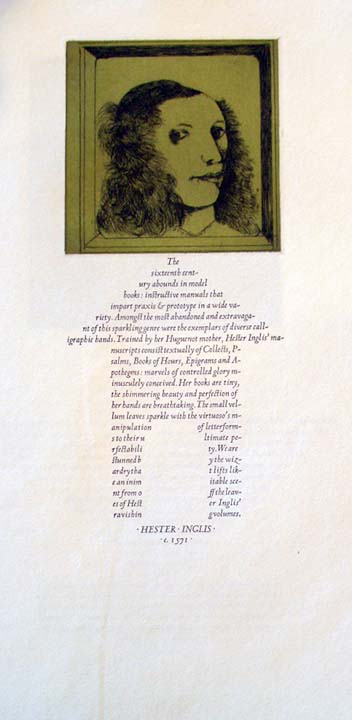 The
sixteenth cent-
ury abounds in model
books: instructive manuals that
impart praxis & prototype in a wide va-
riety. Amongst the most abandoned and extravaga-
nt of this sparkling genre were the exemplars of diverse call-
igraphic hands. Trained by her Huguenot mother, Hester Inglis' ma-
nuscripts consist textually of Collects, P-
salms, Books of Hours, Epigrams and A-
pothegms: marvels of controlled glory m-
inusculely conceived. Her books are tiny,
the shimmering beauty and perfection of
her hands are breathtaking. The small vel-
lum leaves sparkle with the virtuoso's m-
anipulation of letterform-
s to their u ltimate pe-
rfectabili ty. We are
stunned b y the wiz-
ardry tha t lifts lik-
e an inim itable sce-
nt from o ff the leav-
es of Hest er Inglis'
ravishin g volumes.
· HESTER · INGLIS ·
· c. 1571 ·